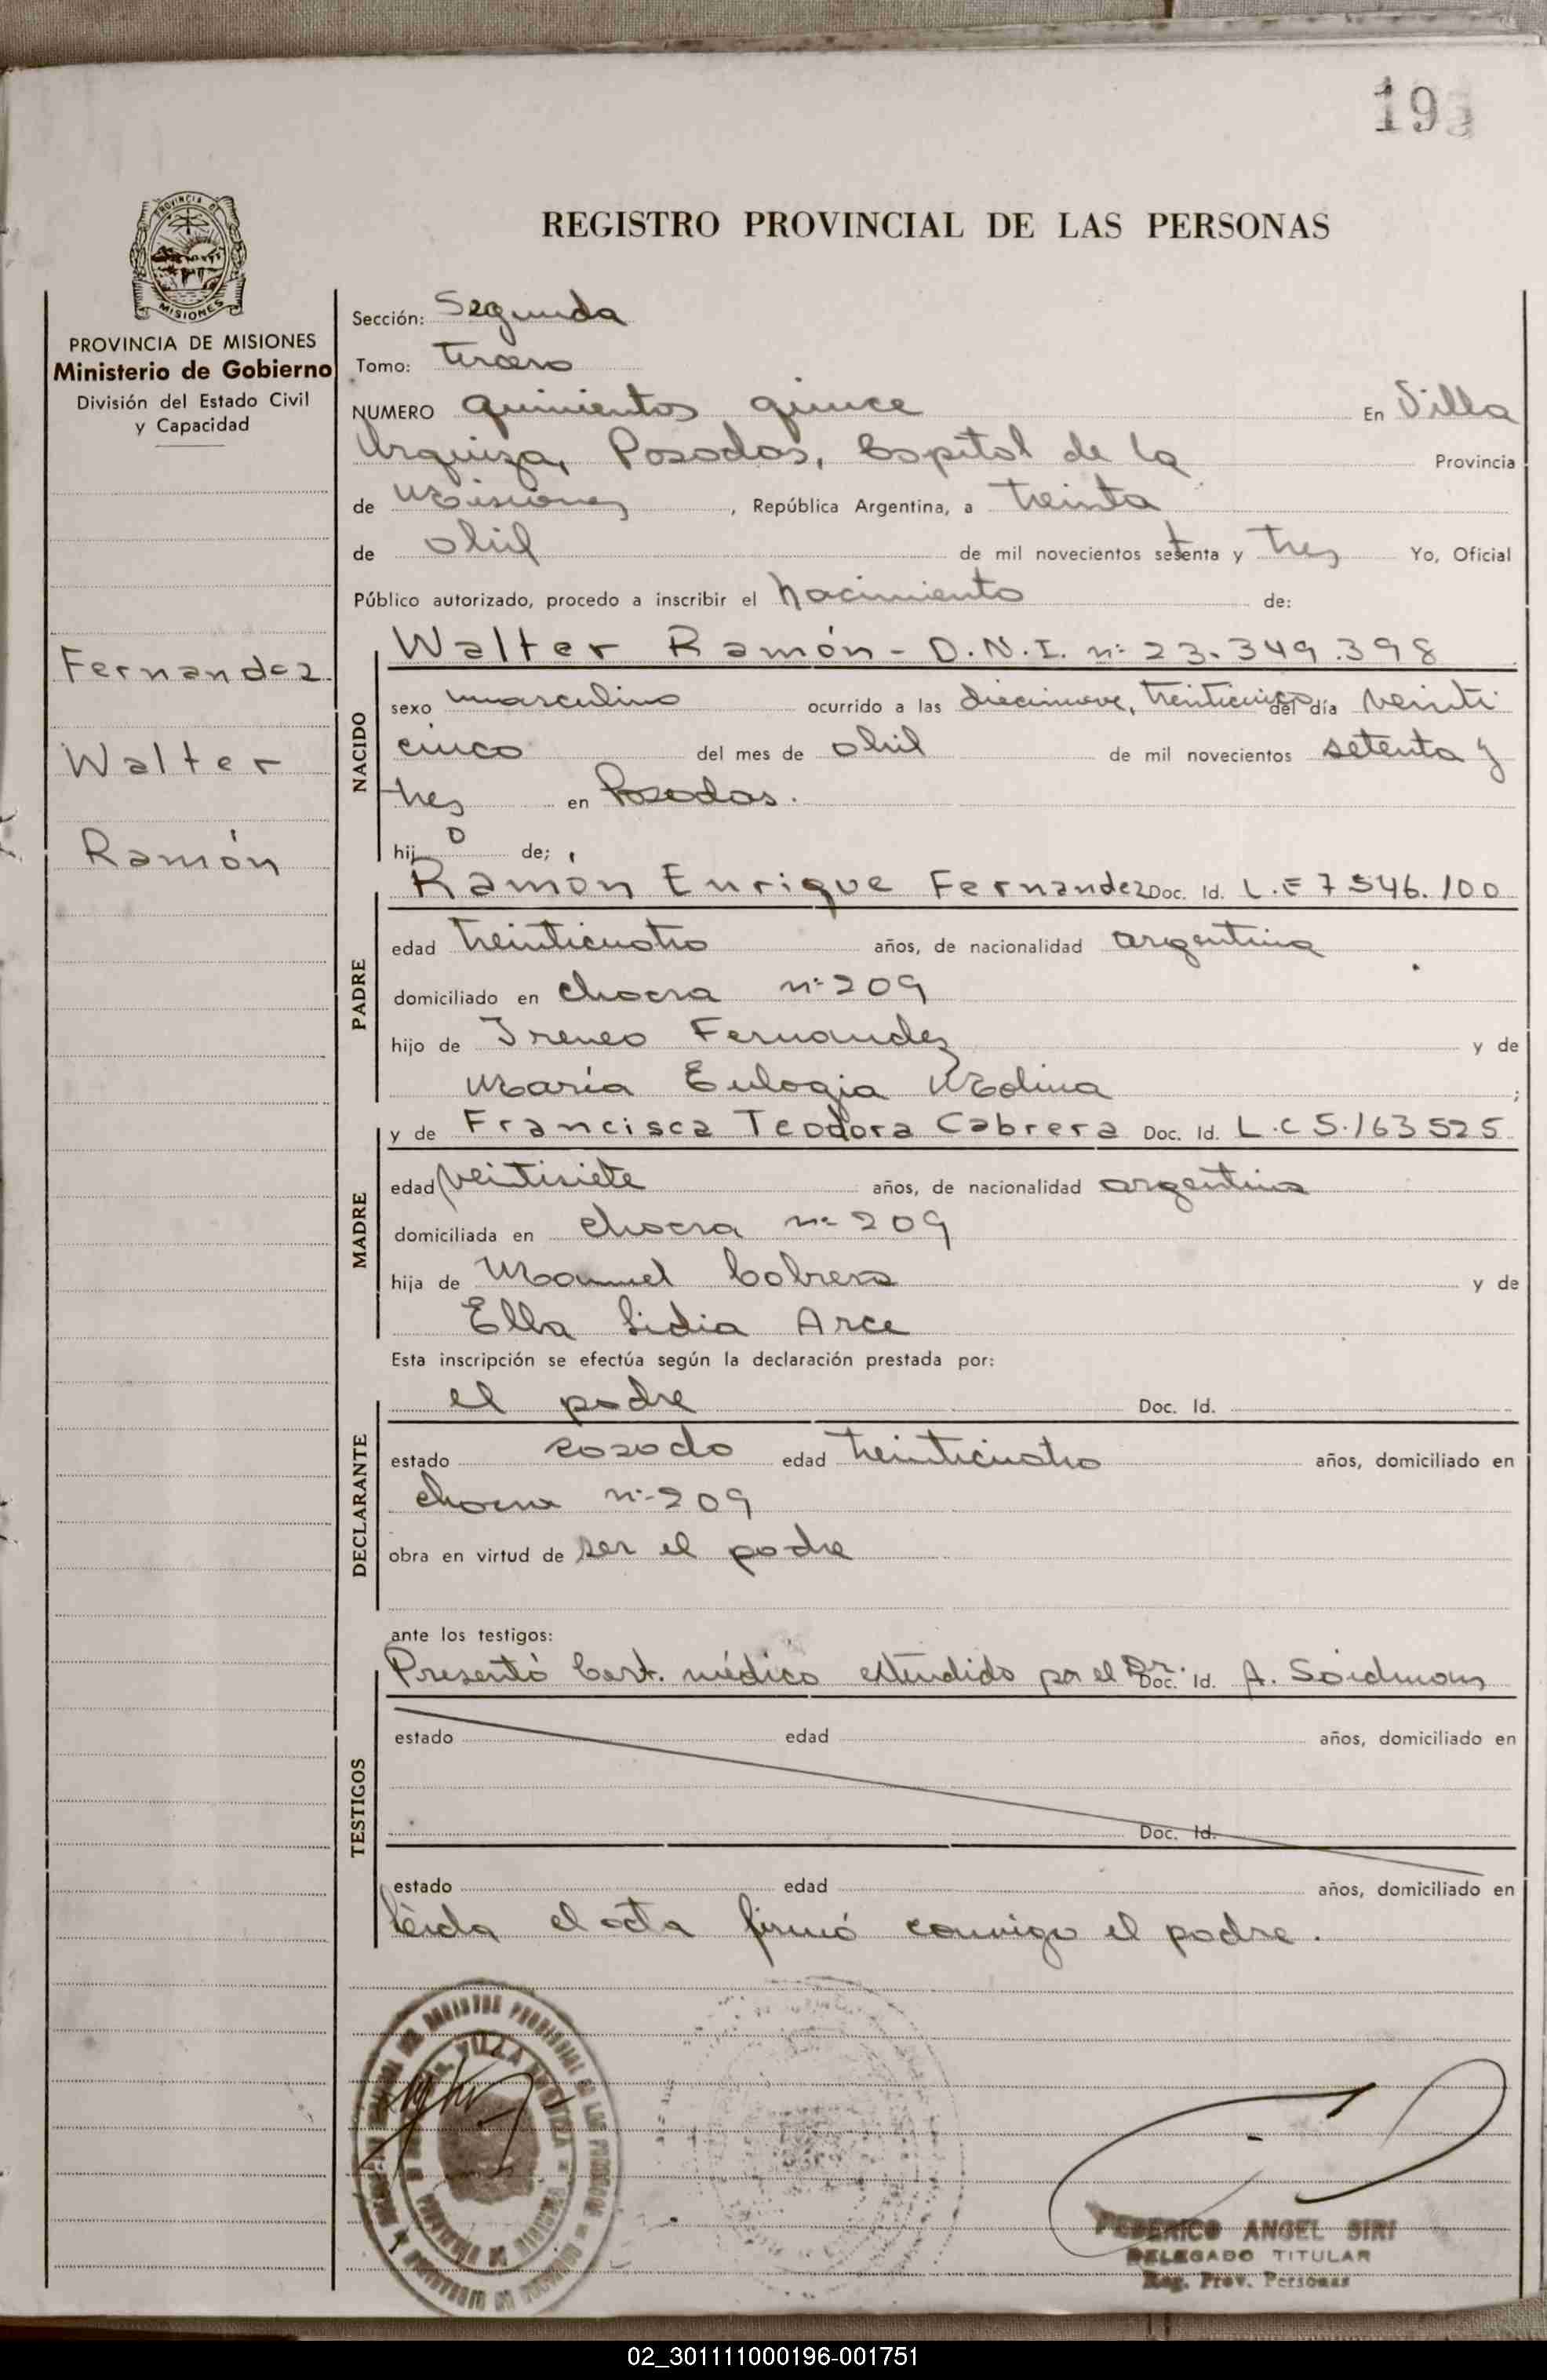 19
REGISTRO PROVINCIAL DE LAS PERSONAS
PROVINCIA DE MISIONES
Ministerio de Gobierno
División del Estado Civil
y Capacidad
Fernandez
Walter
Ramón
Sección: Segunda
Tomo: tercero
NUMERO quinientos quince En Villa
Urquiza, Posadas, Capital de la Provincia
de Misiones, República Argentina, a treinta
de abril de mil novecientos setenta y tres Yo, Oficial
Público autorizado, procedo a inscribir el nacimiento de:
NACIDO
Walter Ramón - D.N.I. nº 23.349.398
sexo masculino ocurrido a las diecinueve, treinticinco del día veinti
cinco del mes de abril de mil novecientos setenta y
tres en Posadas.
hijo de;
PADRE
Ramón Enrique Fernandez Doc. Id. L.E 7546.100
edad treinticuatro años, de nacionalidad argentina
domiciliado en chacra nº 209
hijo de Ireneo Fernandez y de
María Eulogia Molina ;
MADRE
y de Francisca Teodora Cabrera Doc. Id. L.C 5.163525
edad veitisiete años, de nacionalidad argentina
domiciliada en chacra nº 209
hija de Manuel Cabrera y de
Elba Lidia Arce
Esta inscripción se efectúa según la declaración prestada por:
DECLARANTE
el padre Doc. Id.
estado casado edad treinticuatro años, domiciliado en
chacra nº 209
obra en virtud de ser el padre
ante los testigos:
TESTIGOS
Presentó Cert. médico extendido por el Dr. Doc. Id. A. Soidmans
estado edad años, domiciliado en
Doc. Id.
estado edad años, domiciliado en
Leida el acta firmó conmigo el padre.
FEDERICO ANGEL SIRI
DELEGADO TITULAR
Reg. Prov. Personas
02_301111000196-001751